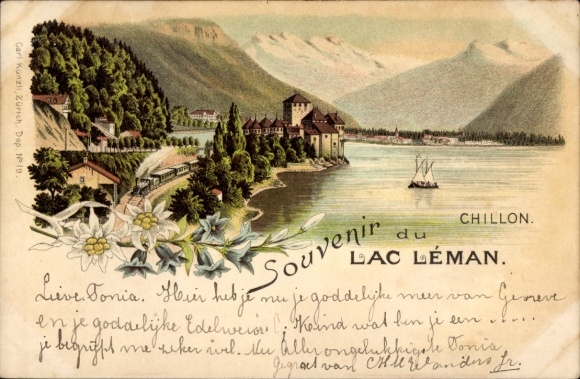 Carl Künzli, Zürich, Dep. No 19.
CHILLON.
Souvenir du
LAC LÉMAN.
Lieve Tonia. Hier heb je nu je goddelijke meer van Geneve
en je goddelijke Edelweiss! Kind wat ben je een .....
je begrijpt me zeker wel. Nu allerongelukkigste Tonia
Gegroet van